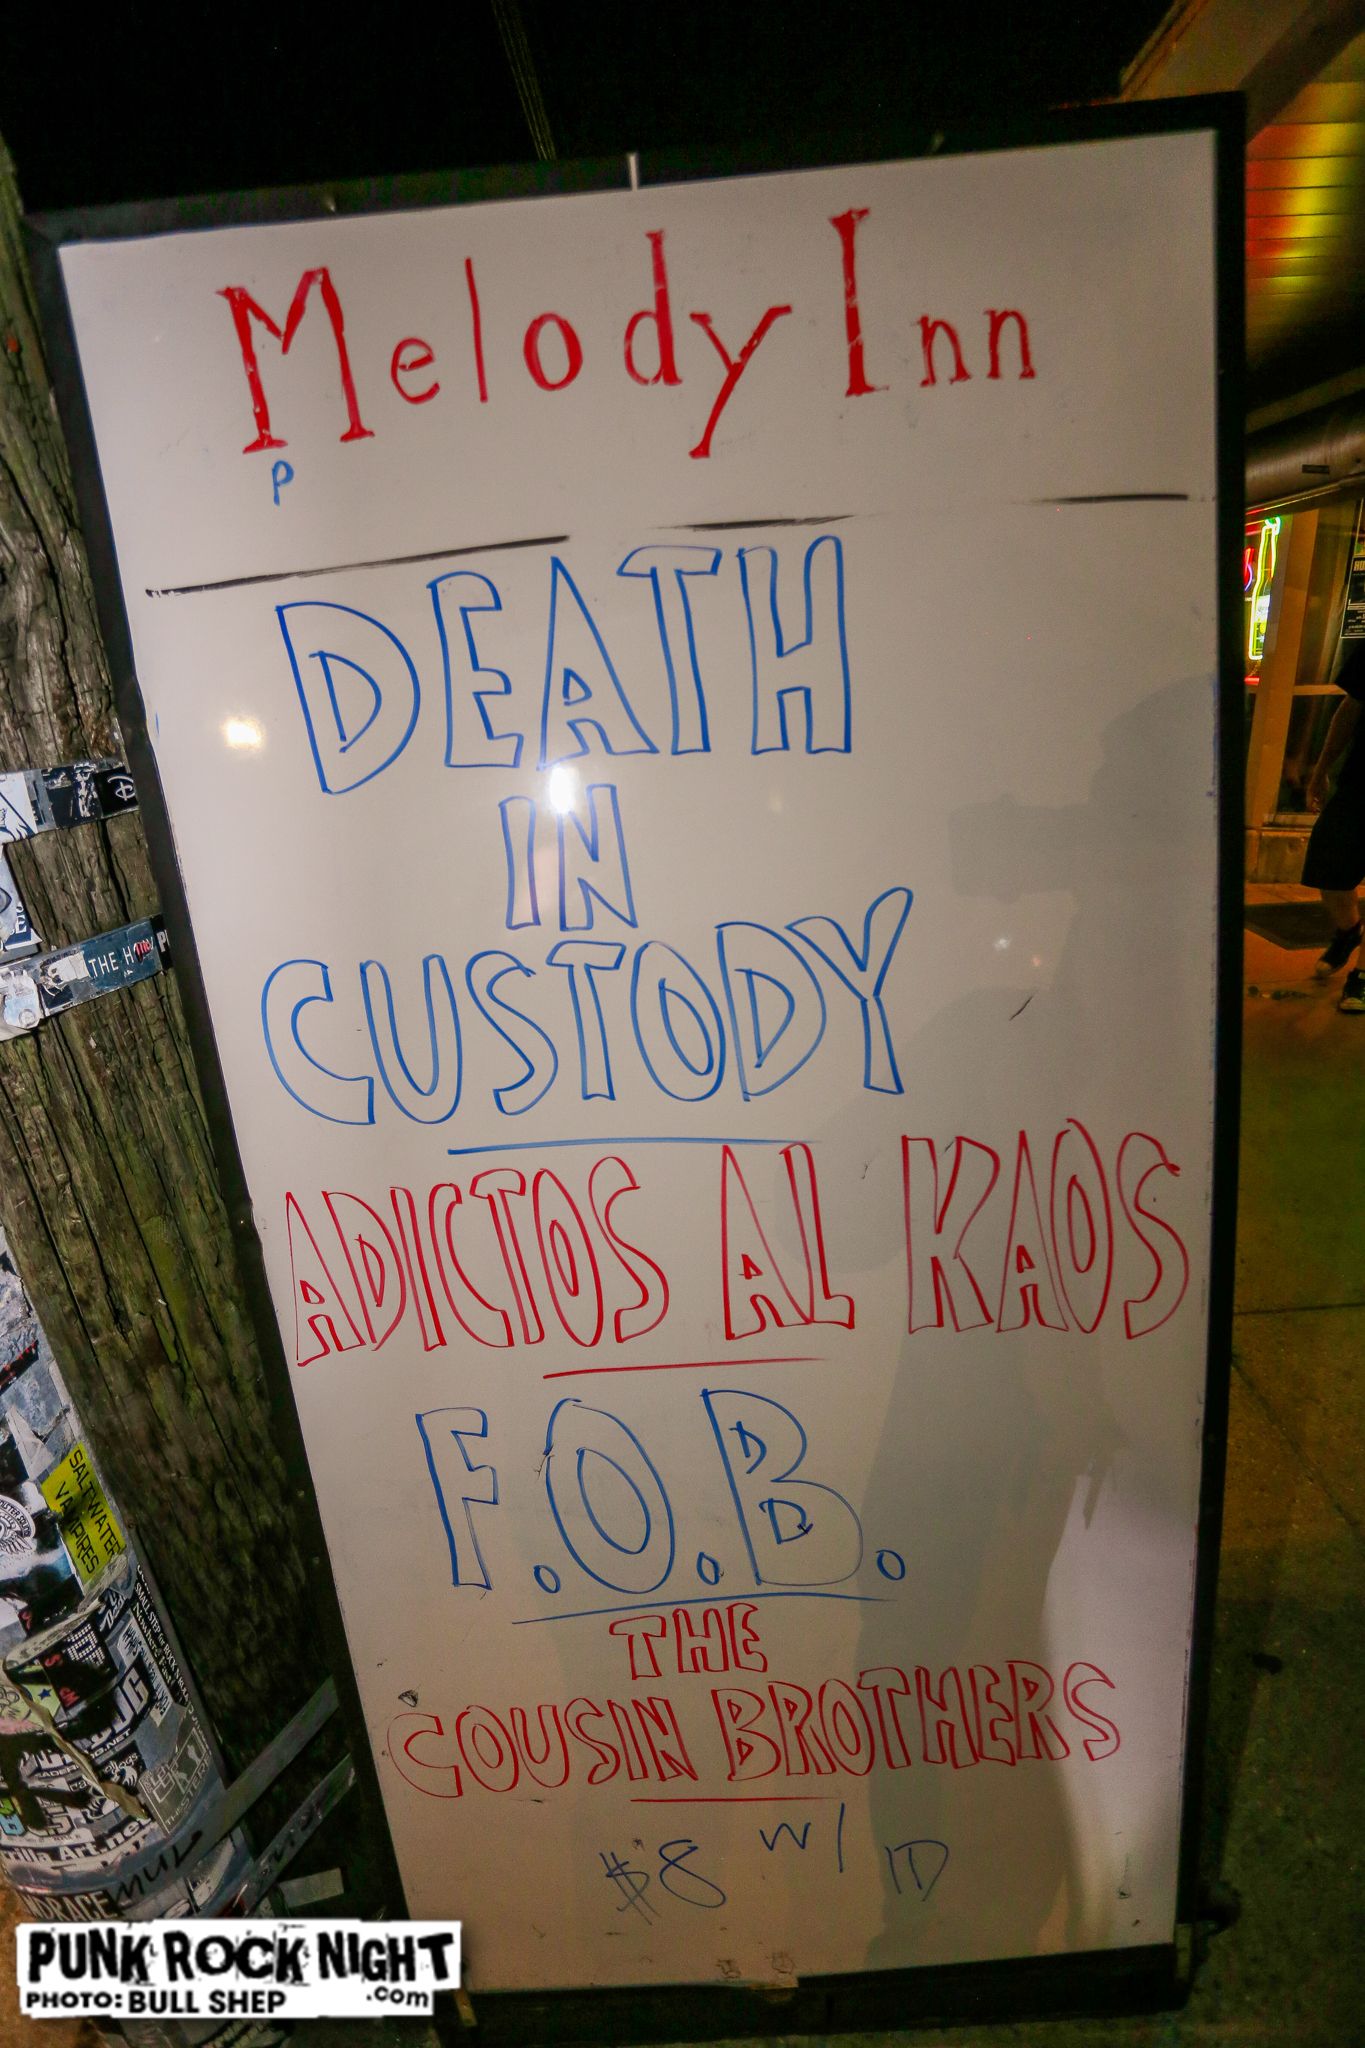 Melody Inn
P
DEATH
IN
CUSTODY
ADICTOS AL KAOS
F.O.B.
THE
COUSIN BROTHERS
$8 w/ ID
THE H
SALTWATER
VAMPIRES
PUNK ROCK NIGHT
.com
PHOTO: BULL SHEP